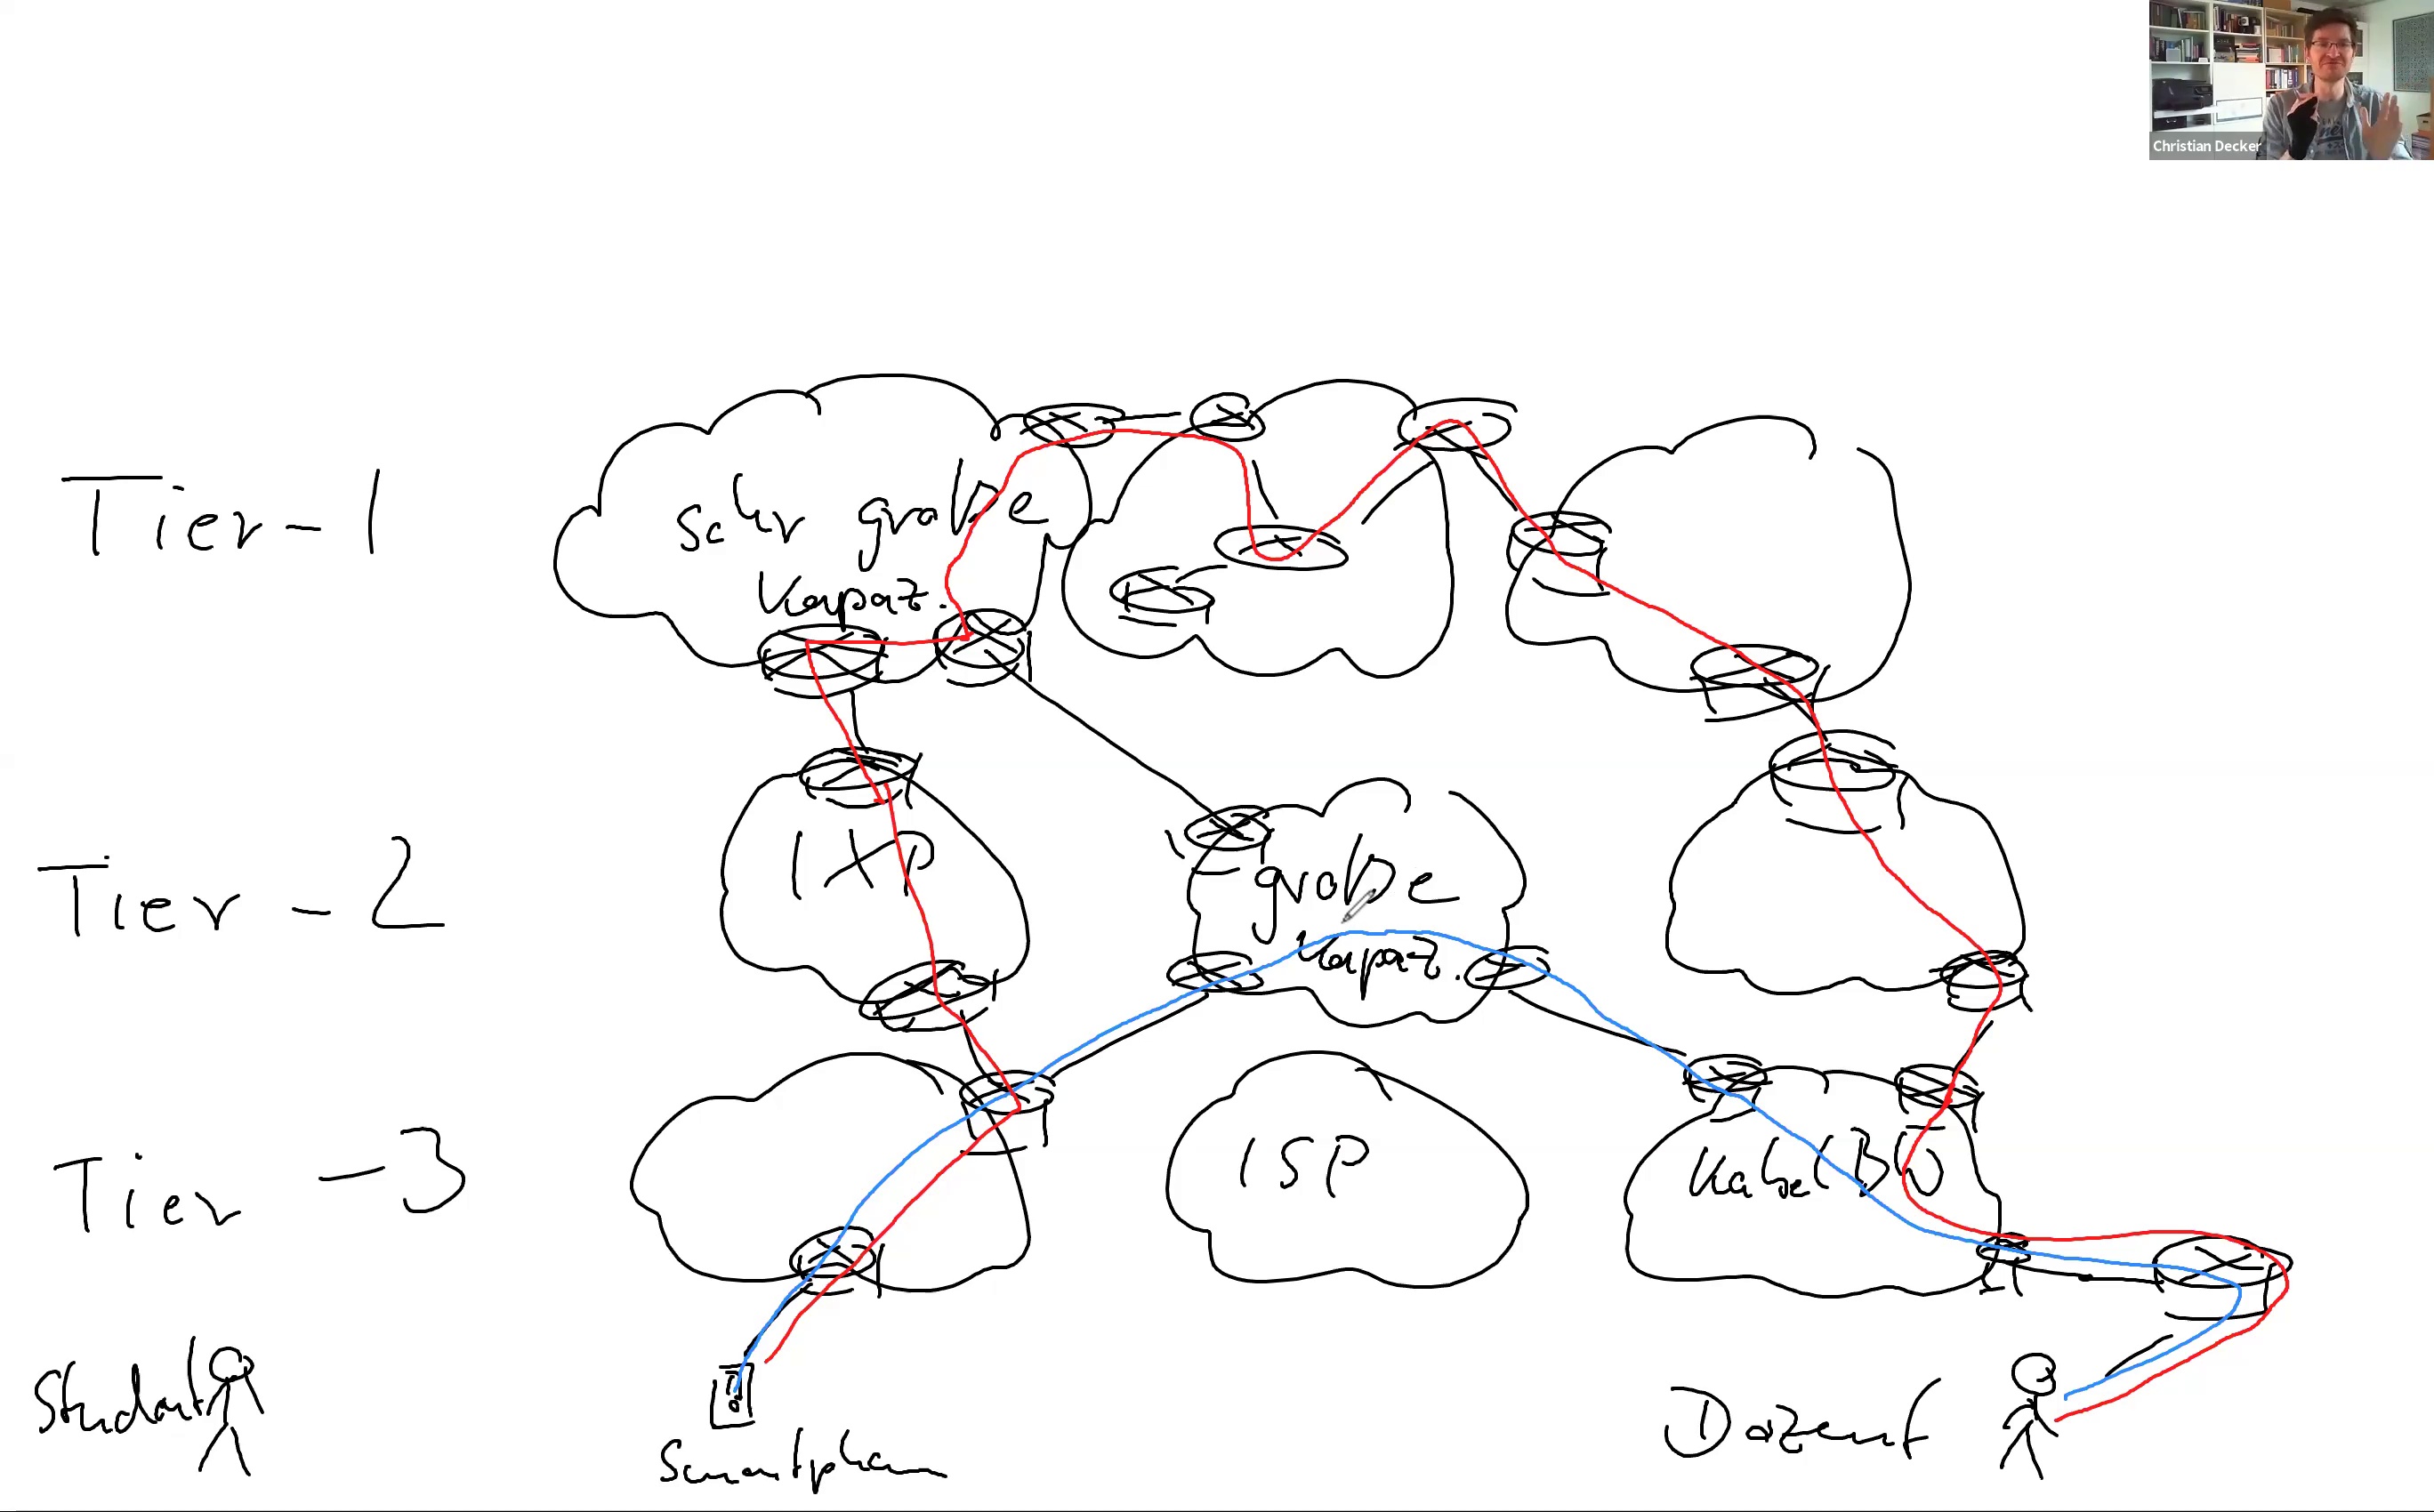 Christian Decker
Tier-1
sehr große
Kapaz.
Tier-2
IXP
große
Kapaz.
Tier-3
ISP
KabelBW
Student
Smartphone
Dozent